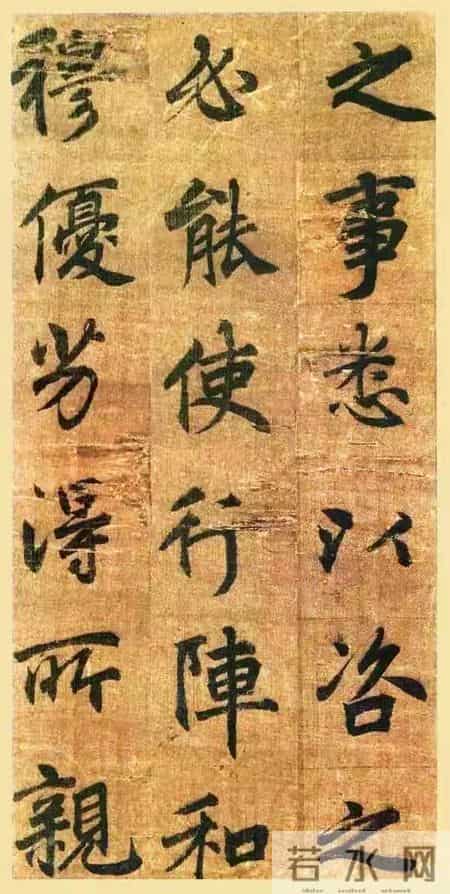 之事悉以咨之
必能使行陣和
穆優劣得所親
若水网